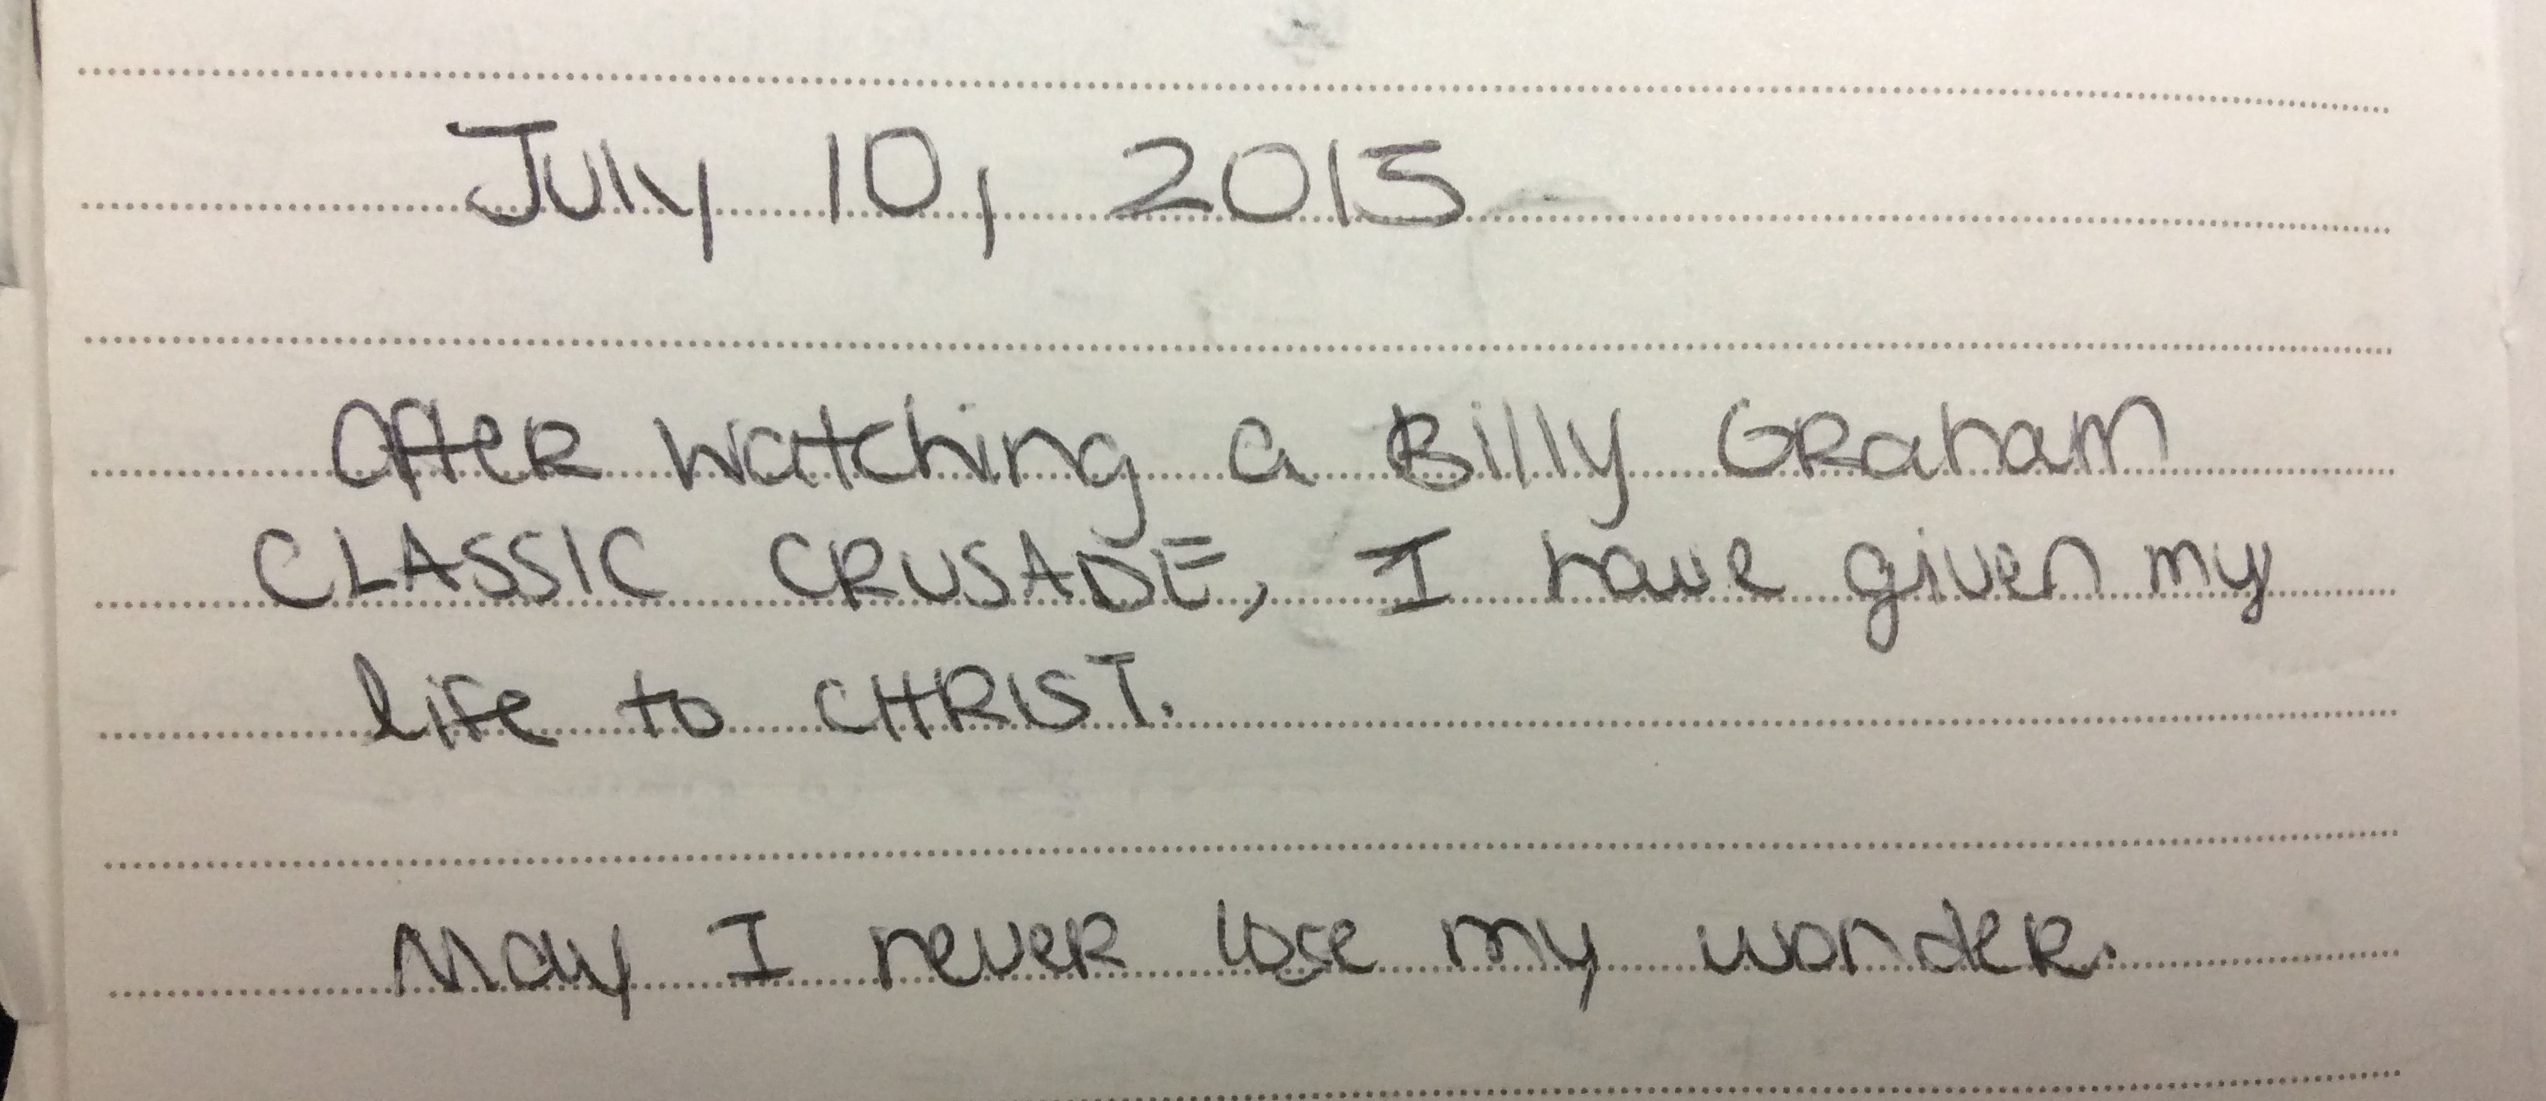 July 10, 2015
After watching a Billy Graham
CLASSIC CRUSADE, I have given my
life to CHRIST.
May I never lose my wonder.